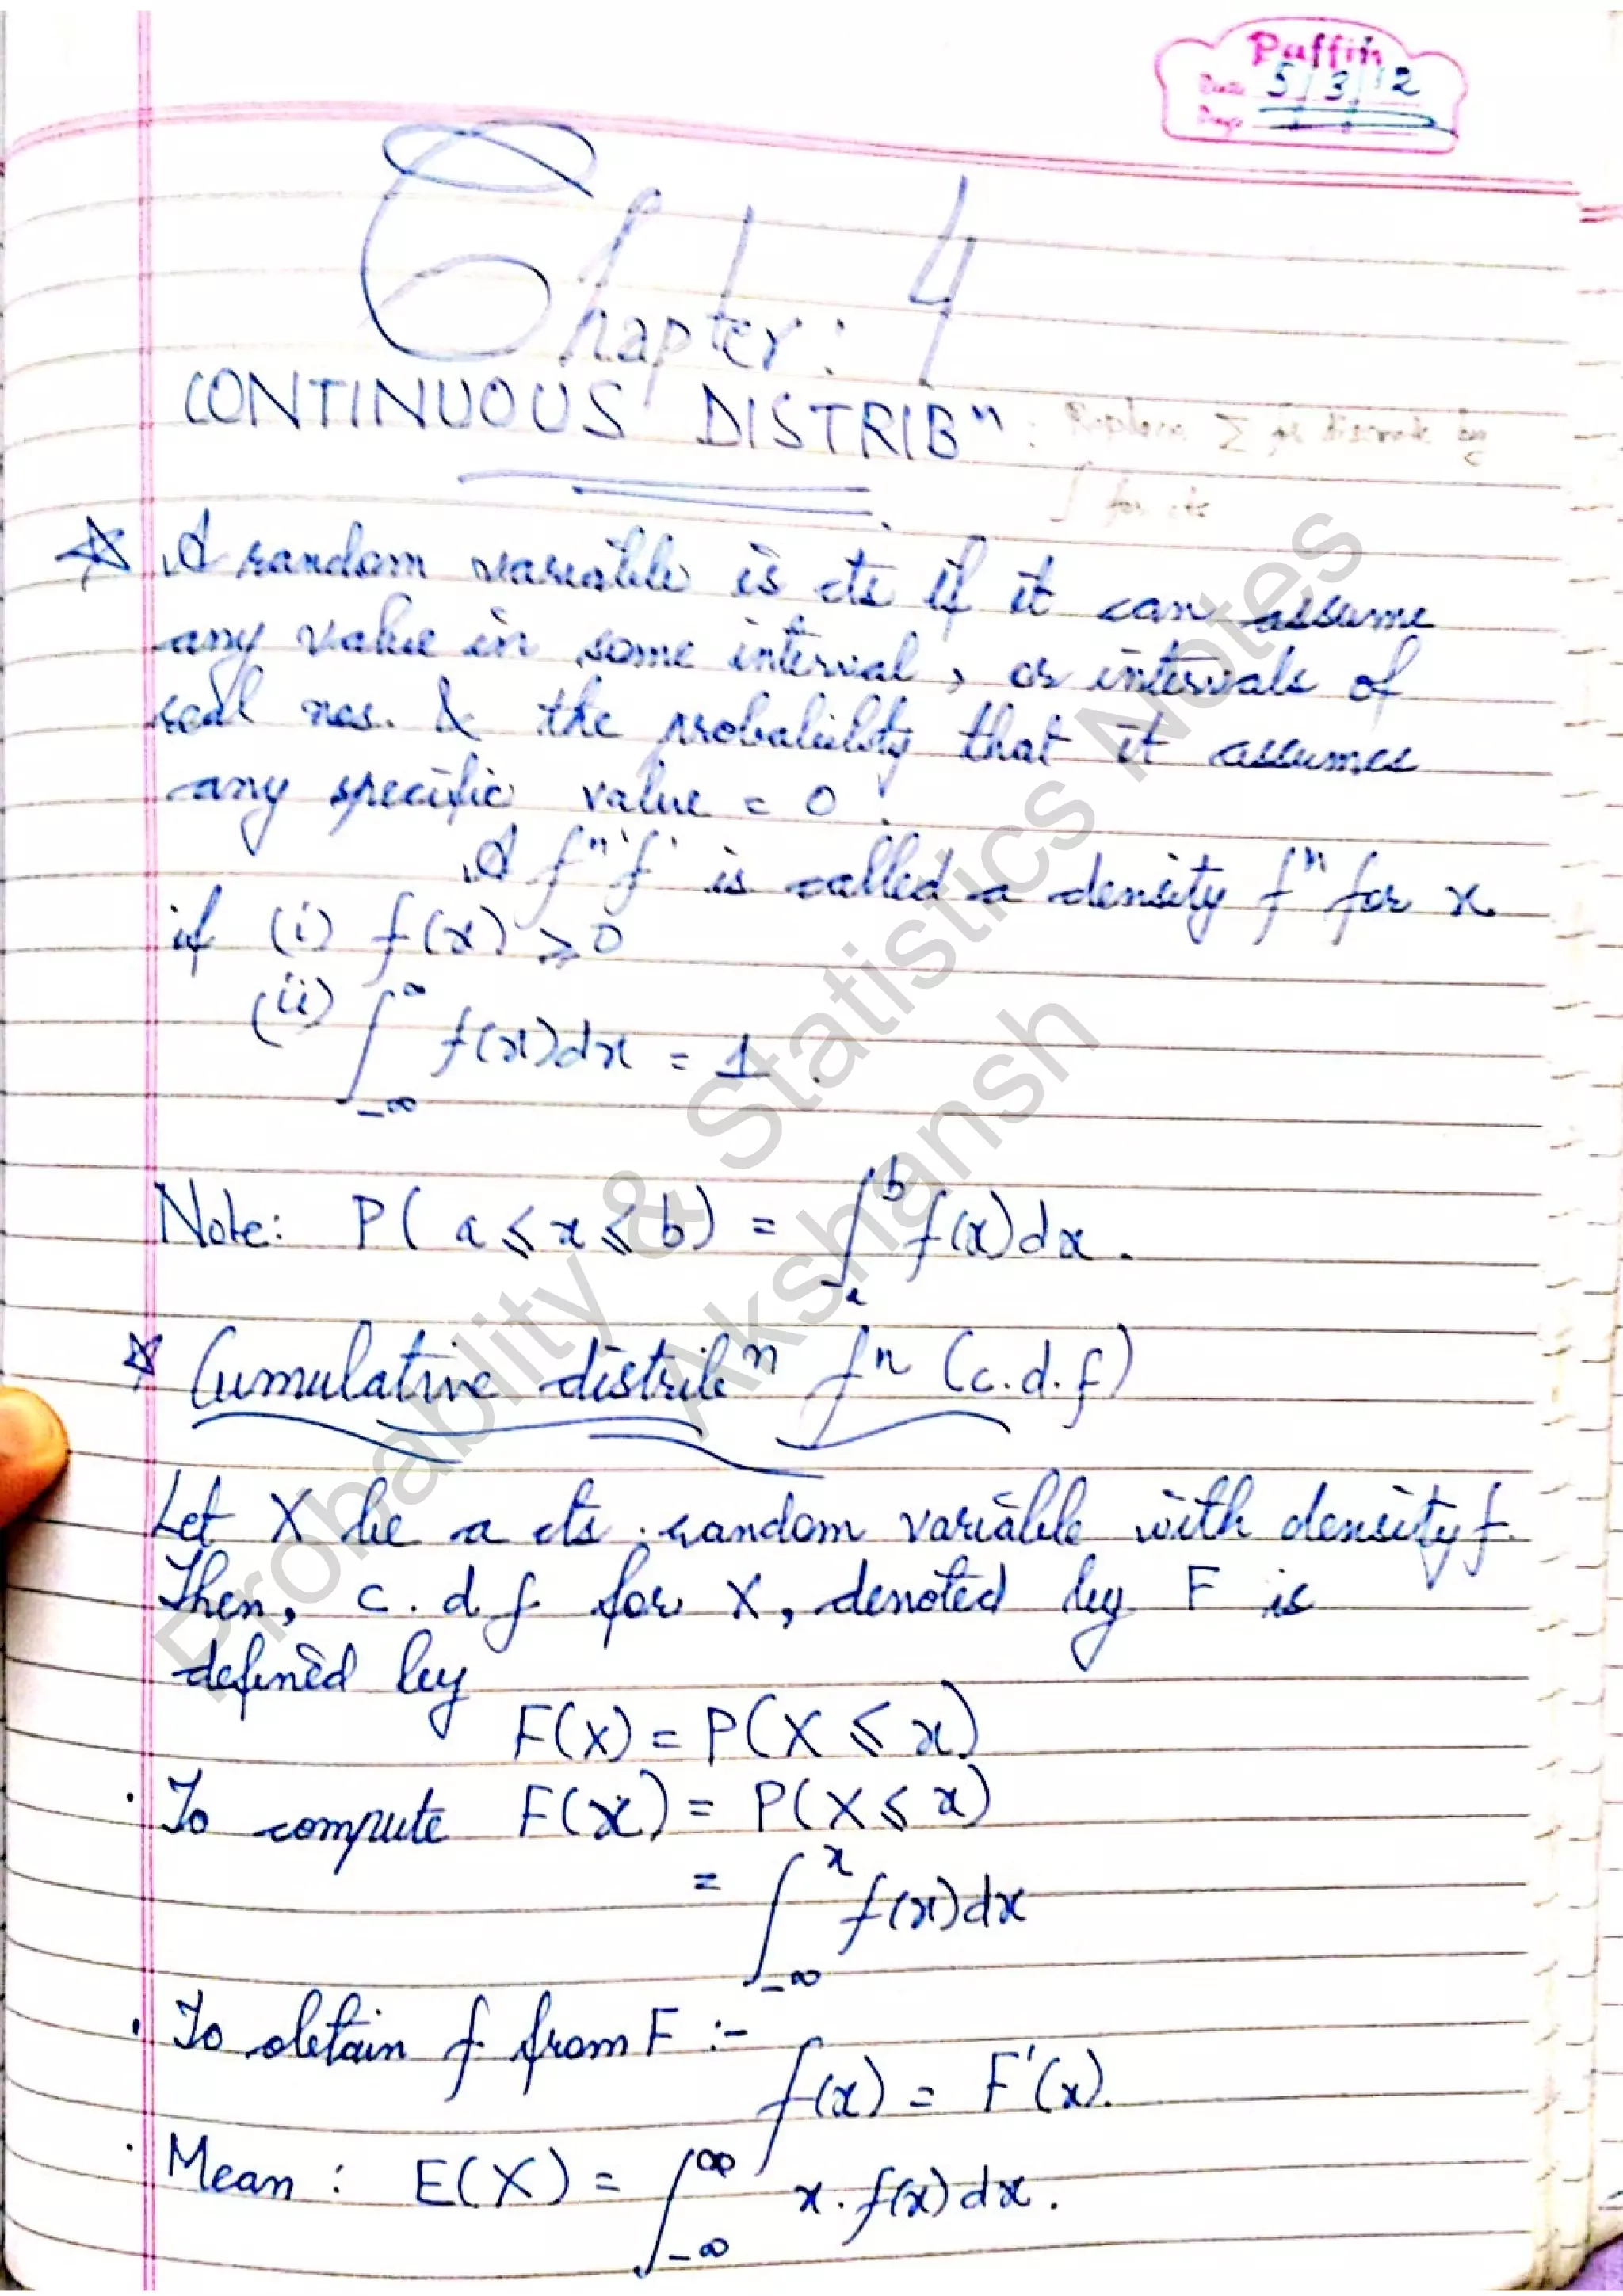 Puffin
Date 5/3/12
Page
Chapter: 4
CONTINUOUS DISTRIBⁿ : Replace Σ for discrete by
∫ for cts
☆ A random variable is cts if it can assume
any value in some interval, or intervals of
real nos. & the probability that it assumes
any specific value = 0.
A fⁿ 'f' is called a density fⁿ for x
if (i) f(x) ⩾ 0
(ii) ∫_{-∞}^{∞} f(x)dx = 1.
Note: P( a ⩽ x ⩽ b) = ∫_a^b f(x)dx.
☆ Cumulative distribⁿ fⁿ (c.d.f)
Let X be a cts. random variable with density f.
Then, c.d.f for X, denoted by F is
defined by
F(x) = P(X ⩽ x)
· To compute F(x) = P(X ⩽ x)
= ∫_{-∞}^{x} f(x)dx
· To obtain f from F :-
f(x) = F'(x).
· Mean : E(X) = ∫_{-∞}^{∞} x.f(x)dx.
Probability & Statistics Notes
Akshansh